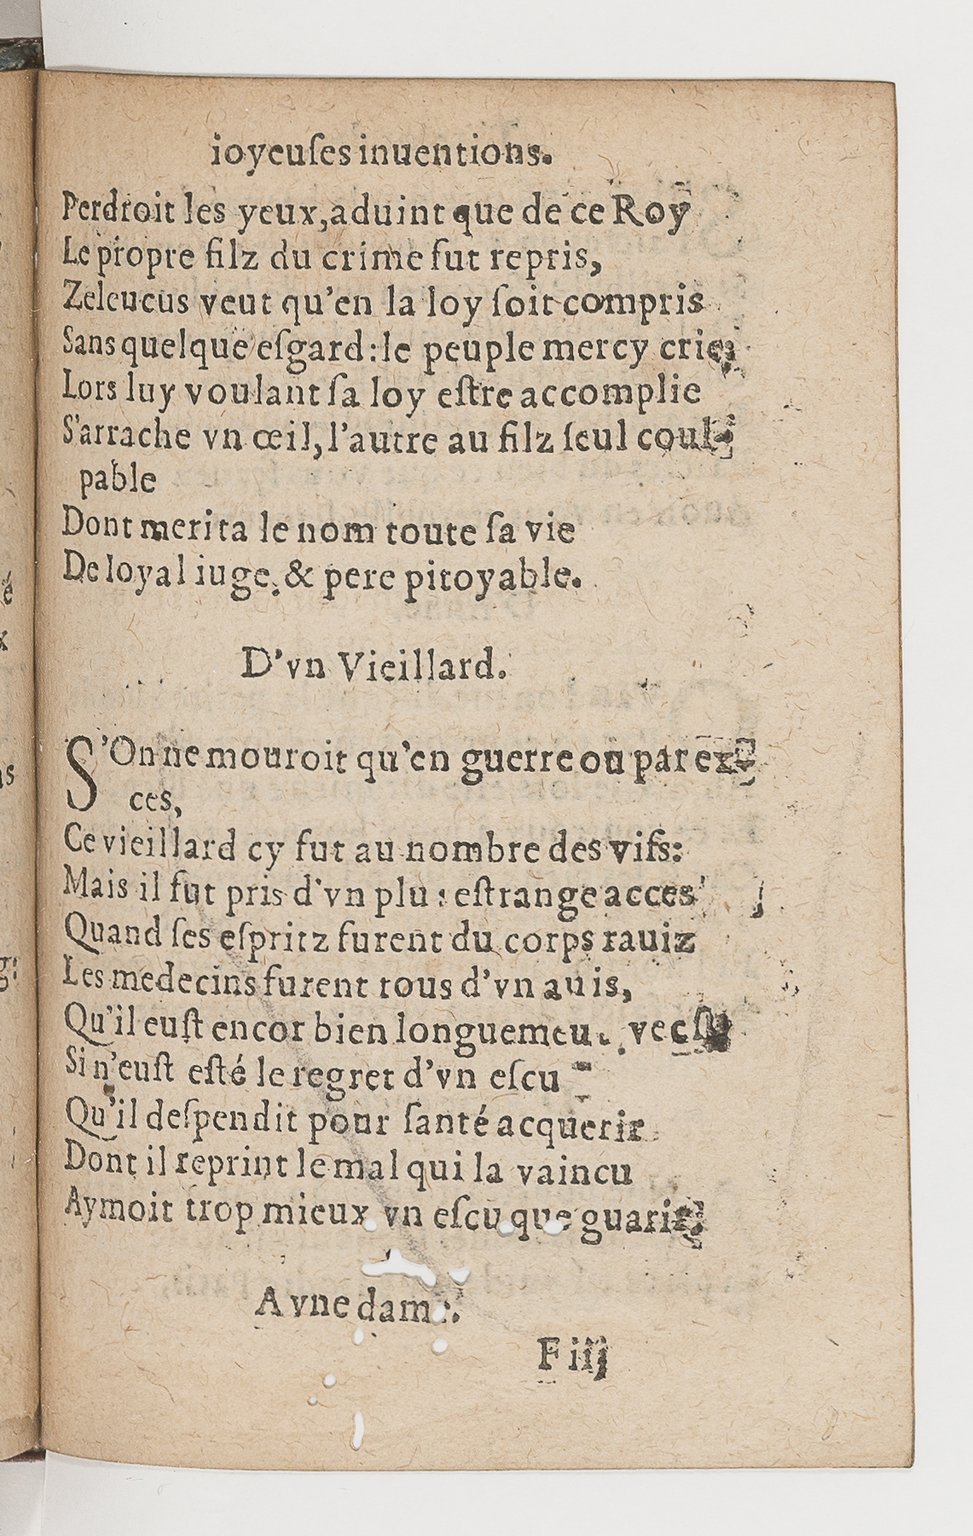 ioyeuſes inuentions.
Perdroit les yeux,aduint que de ce Roy
Le propre filz du crime fut repris,
Zeleucus veut qu'en la loy ſoit compris
Sans quelque eſgard:le peuple mercy crie,
Lors luy voulant ſa loy eſtre accomplie
S'arrache vn œil,l'autre au filz ſeul coul-
pable
Dont merita le nom toute ſa vie
De loyal iuge, & pere pitoyable.
D'vn Vieillard.
S'On ne mouroit qu'en guerre ou par ex-
ces,
Ce vieillard cy fut au nombre des vifs:
Mais il fut pris d'vn plus eſtrange acces
Quand ſes eſpritz furent du corps rauiz
Les medecins furent tous d'vn auis,
Qu'il euſt encor bien longuement veſcu
Si n'euſt eſté le regret d'vn eſcu
Qu'il deſpendit pour ſanté acquerir
Dont il reprint le mal qui la vaincu
Aymoit trop mieux vn eſcu que guarir.
A vne dame.
F iij